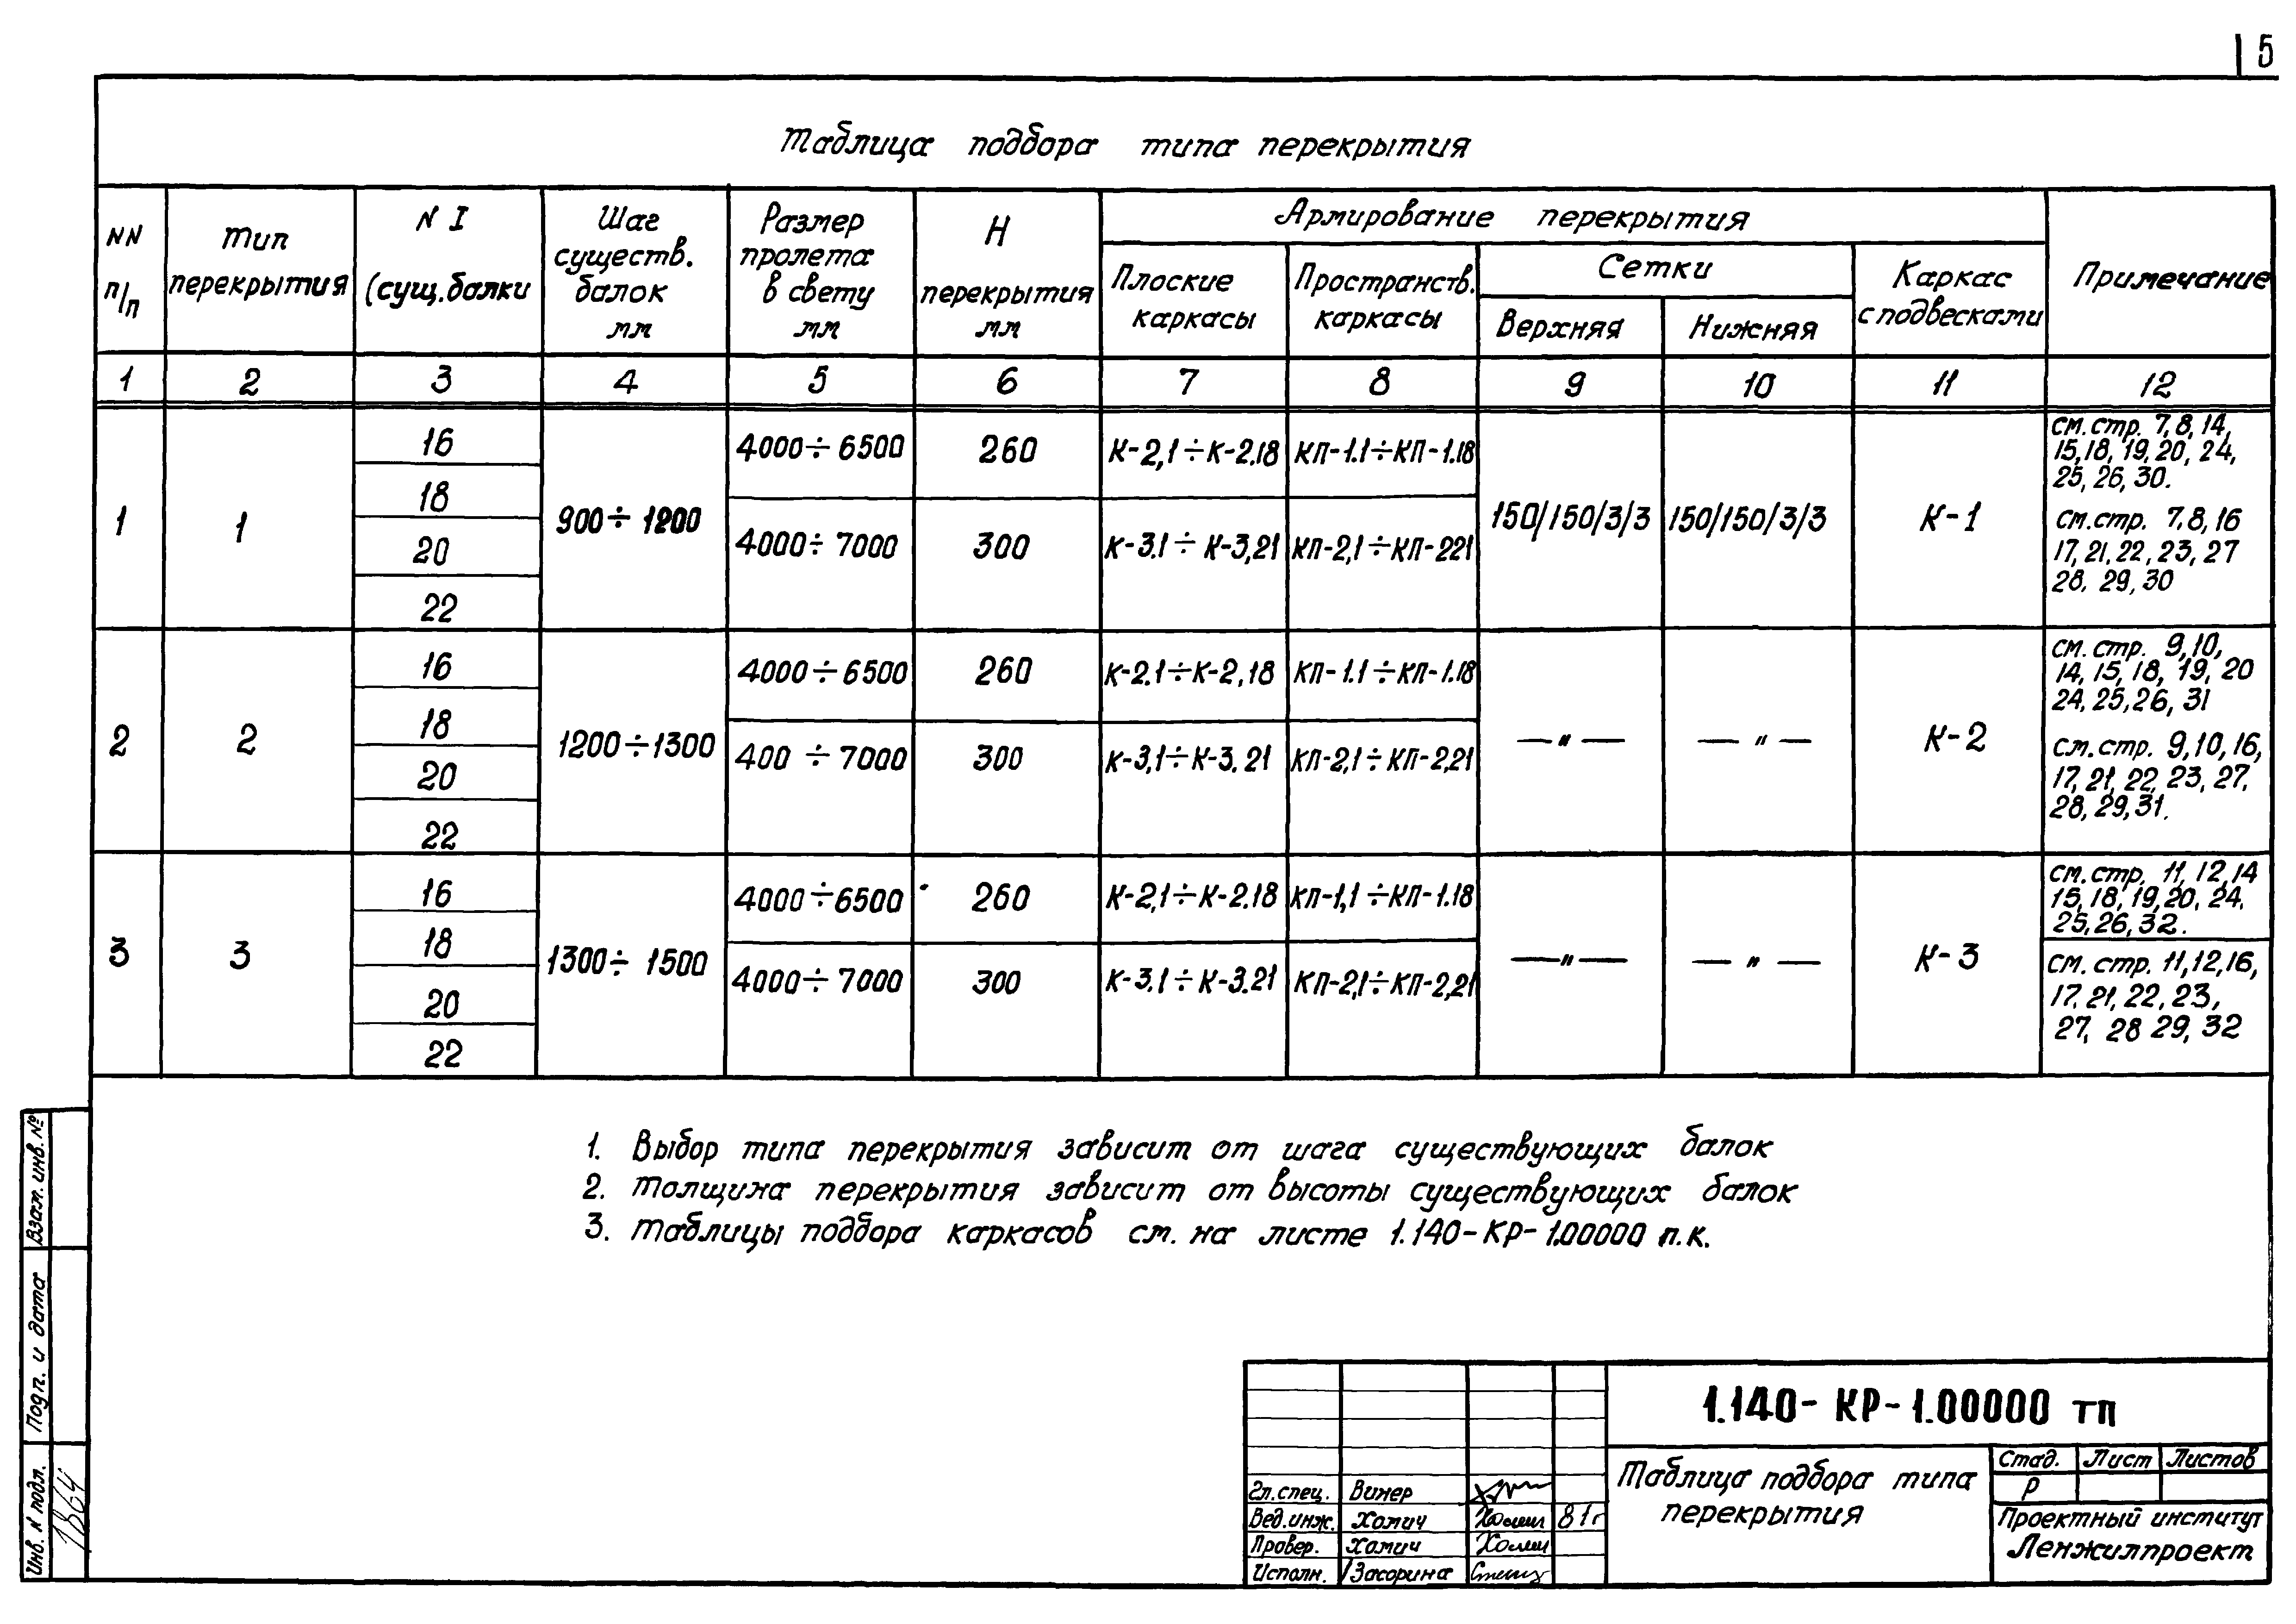 5
Таблица подбора типа перекрытия
NN п/п
Тип перекрытия
N I (сущ.балки
Шаг существ. балок мм
Размер пролета в свету мм
Н перекрытия мм
Армирование перекрытия
Плоские каркасы
Пространств. каркасы
Сетки
Верхняя
Нижняя
Каркас с подвесками
Примечание
1 2 3 4 5 6 7 8 9 10 11 12
1
1
16
18
20
22
900÷1200
4000÷6500 260 К-2,1÷К-2.18 КП-1.1÷КП-1.18
4000÷7000 300 К-3.1÷К-3,21 КП-2,1÷КП-221
150/150/3/3
150/150/3/3
К-1
см.стр. 7,8,14,
15,18,19,20,24,
25,26,30.
см.стр. 7,8,16
17,21,22,23,27
28. 29,30
2
2
16
18
20
22
1200÷1300
4000÷6500 260 К-2.1÷К-2,18 КП-1.1÷КП-1.18
400 ÷7000 300 К-3,1÷К-3.21 КП-2,1÷КП-2,21
—"—
—"—
К-2
см.стр. 9,10,
14,15,18,19,20
24,25,26,31
см.стр. 9,10,16,
17,21,22,23,27,
28,29,31.
3
3
16
18
20
22
1300÷1500
4000÷6500 260 К-2,1÷К-2.18 КП-1,1÷КП-1.18
4000÷7000 300 К-3.1÷К-3.21 КП-2,1÷КП-2,21
—"—
—"—
К-3
см.стр. 11,12,14
15,18,19,20,24,
25,26,32.
см.стр. 11,12,16,
17,21,22,23,
27, 28 29,32
1. Выбор типа перекрытия зависит от шага существующих балок
2. Толщина перекрытия зависит от высоты существующих балок
3. Таблицы подбора каркасов см. на листе 1.140-КР-1.00000 п.к.
Взам. инв. №
Подп. и дата
Инв. N подл.
1864
1.140-КР-1.00000 тп
Таблица подбора типа
перекрытия
Стад. Лист Листов
Р
Проектный институт
Ленжилпроект
Гл.спец. Винер
Вед.инж. Хомич Хомич 81г
Провер. Хомич Хомич
Исполн. Засорина